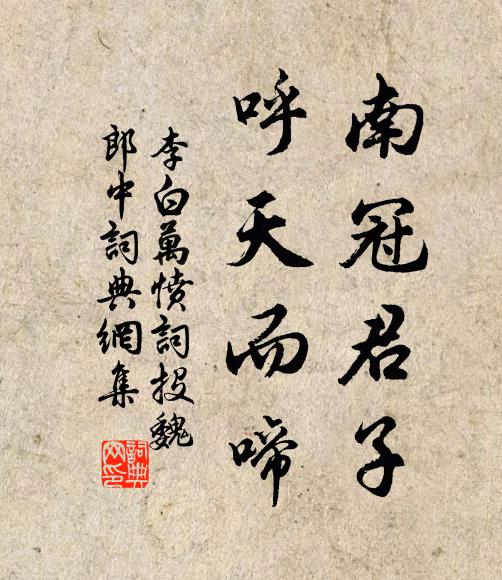 南冠君子
呼天而啼
李白萬憤詞投魏
郎中詞典網集
詞典
网印